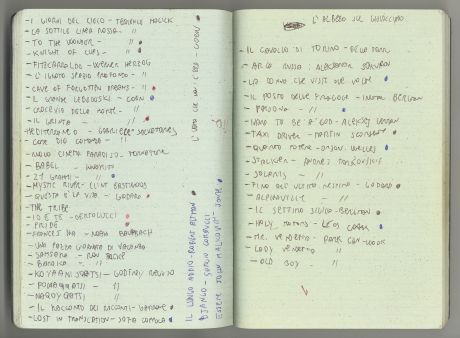 - I GIORNI DEL CIELO - TERRENCE MALICK
- LA SOTTILE LINEA ROSSA - //
- TO THE WONDER - //
- KNIGHT OF CUPS - //
- FITZCARRALDO - WERNER HERZOG
- L'IGNOTO SPAZIO PROFONDO - //
- CAVE OF FORGOTTEN DREAMS - //
- IL GRANDE LEBOWSKI - COEN
- CROCEVIA DELLA MORTE - //
- IL GRINTA - //
MEDITERRANEO - GABRIELE SALVATORES
- COME DIO COMANDA - //
- NUOVO CINEMA PARADISO - TORNATORE
- BABEL -
- 21 GRAMMI - //
- MYSTIC RIVER - CLINT EASTWOOD
- QUESTA È LA VITA - GODARD
- THE TRIBE
- IO E TE - BERTOLUCCI
- PRIDE
- FRANCES HA - NOAH BAUMBACH
- UNA
- SAMSARA - RON FRICKE
- BARAKA - //
- KOYAANISQATSI - GODFREY REGGIO
- POWAQQATSI - //
- NAQOYQATSI //
- IL RACCONTO DEI RACCONTI - GARRONE
- LOST IN TRANSLATION - SOFIA COPPOLA
L'UOMO CHE NON C'ERA - COEN
IL LUNGO ADDIO - ROBERT ALTMAN
DJANGO - SERGIO CORBUCCI
ESSERE JOHN MALKOVICH - JONZE
L'ALBERO
- IL CAVALLO DI TORINO - BELA TARR
- ARCA RUSSA - ALEKSANDR SOKUROV
- LA DONNA CHE VISSE DUE VOLTE
- IL POSTO DELLE FRAGOLE - INGMAR BERGMAN
- PERSONA - //
- HARD TO BE A GOD - ALEKSEJ GERMAN
- TAXI DRIVER - MARTIN SCORSESE
- QUARTO POTERE - ORSON WELLES
- STALKER - ANDREJ TARKOVSKIJ
- SOLARIS - //
- FINO ALL'ULTIMO RESPIRO - GODARD
- ALPHAVILLE - //
- IL SETTIMO SIGILLO - BERGMAN
- HOLY MOTORS - LEOS CARAX
- MR. VENDETTA - PARK CHAN-WOOK
- LADY VENDETTA //
- OLD BOY - //